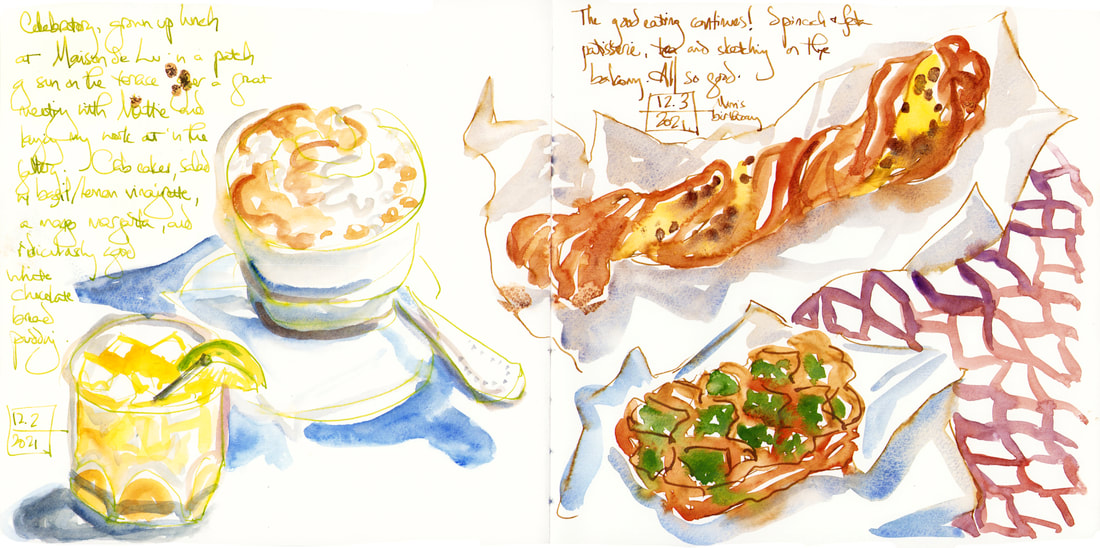 Celebratory, grown up lunch
at Maison de Lu in a patch
of sun on the terrace after a great
meeting with and
my work at in the
Crab cakes, salad
w basil/lemon vinaigrette,
a mango margarita, and
ridiculously good
white
chocolate
bread
pudding.
12.2
2021
The good eating continues! Spinach & feta
patisserie, tea and sketching on the
balcony. All so good.
12.3
2021
Mum's
birthday